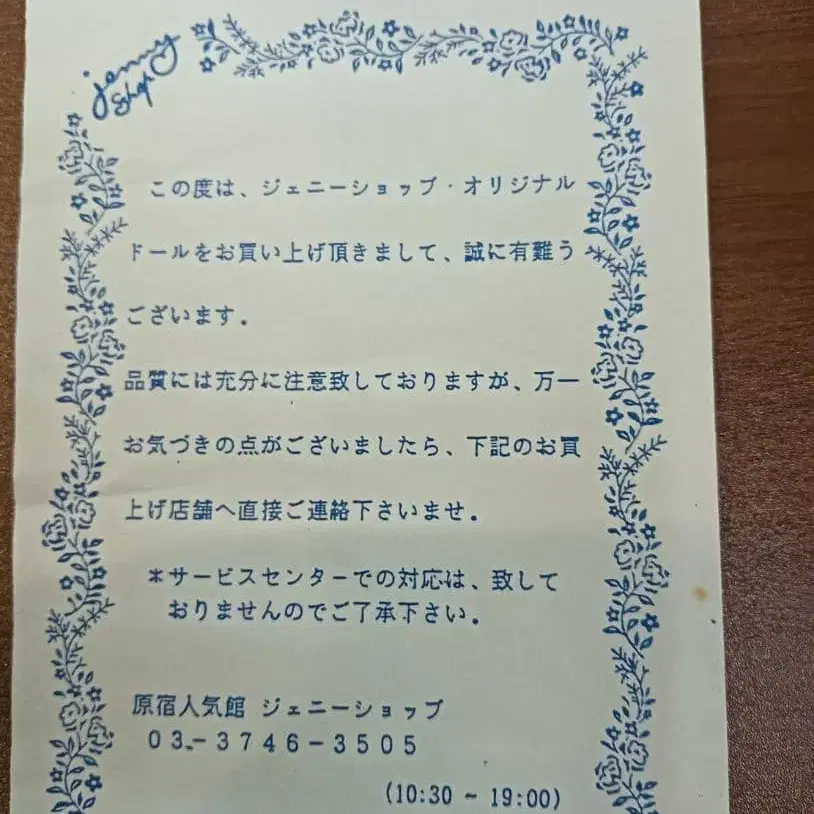 jenny
Shop
この度は、ジェニーショップ・オリジナル
ドールをお買い上げ頂きまして、誠に有難う
ございます。
品質には充分に注意致しておりますが、万一
お気づきの点がございましたら、下記のお買
上げ店舗へ直接ご連絡下さいませ。
＊サービスセンターでの対応は、致して
おりませんのでご了承下さい。
原宿人気館 ジェニーショップ
03-3746-3505
(10:30 ~ 19:00)